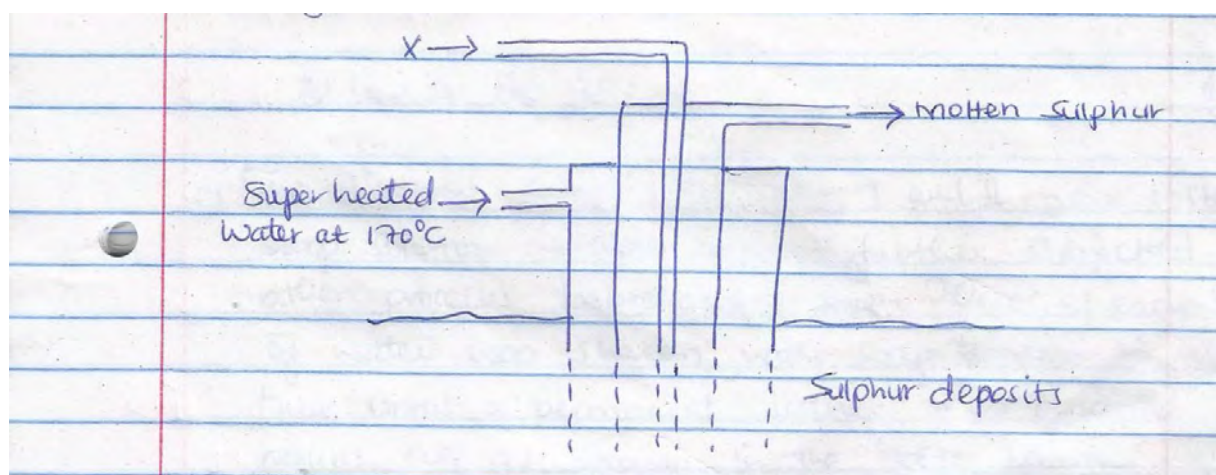 X →
→ Molten Sulphur
Super heated →
Water at 170°C
Sulphur deposits